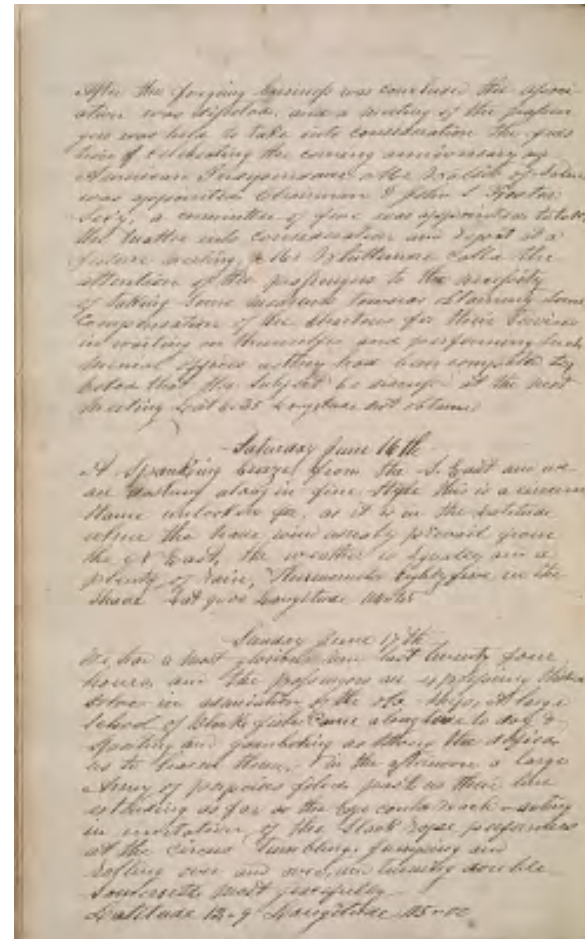 After the forging business was concluded the associ-
ation was dissolved, and a meeting of the passen
gers was held to take into consideration the ques
tion of celebrating the coming anniversary of
American Independence, Mr of Salem
was appointed Chairman & John L
Secy, a committee of five was appointed to take
the matter into consideration and report at a
future meeting, Mr Whittemore calls the
attention of the passengers to the necessity
of taking some measures towards obtaining some
compensation of the directors for their services
in waiting on themselves and performing such
menial offices nothing had been
that the subject be at the next
meeting Lat 6-35 Longitude not obtained
Saturday June 16th
A Spanking breeze from the S. East and we
are along in fine style this is a circum
stance unlooked for, as it is in the latitude
where the trade wind usually prevail from
the N East, the weather is squally and a
plenty of rain, Thermometer Eighty five in the
shade Lat 9-00 Longitude
Sunday June 17th
We had a most glorious run last twenty four
hours, and the passengers are expressing
in admiration of the old ship, A large
school of black fish came along side to day &
spouting and gamboling as though the
us to them. In the afternoon a large
Army of porpoises filed past us their line
extending as far as the eye could reach
in imitation of the slack rope performers
at the circus tumbling, jumping and
rolling over and over, and turning double
Somersets most gracefully
Latitude 12-9 Longitude 115-00